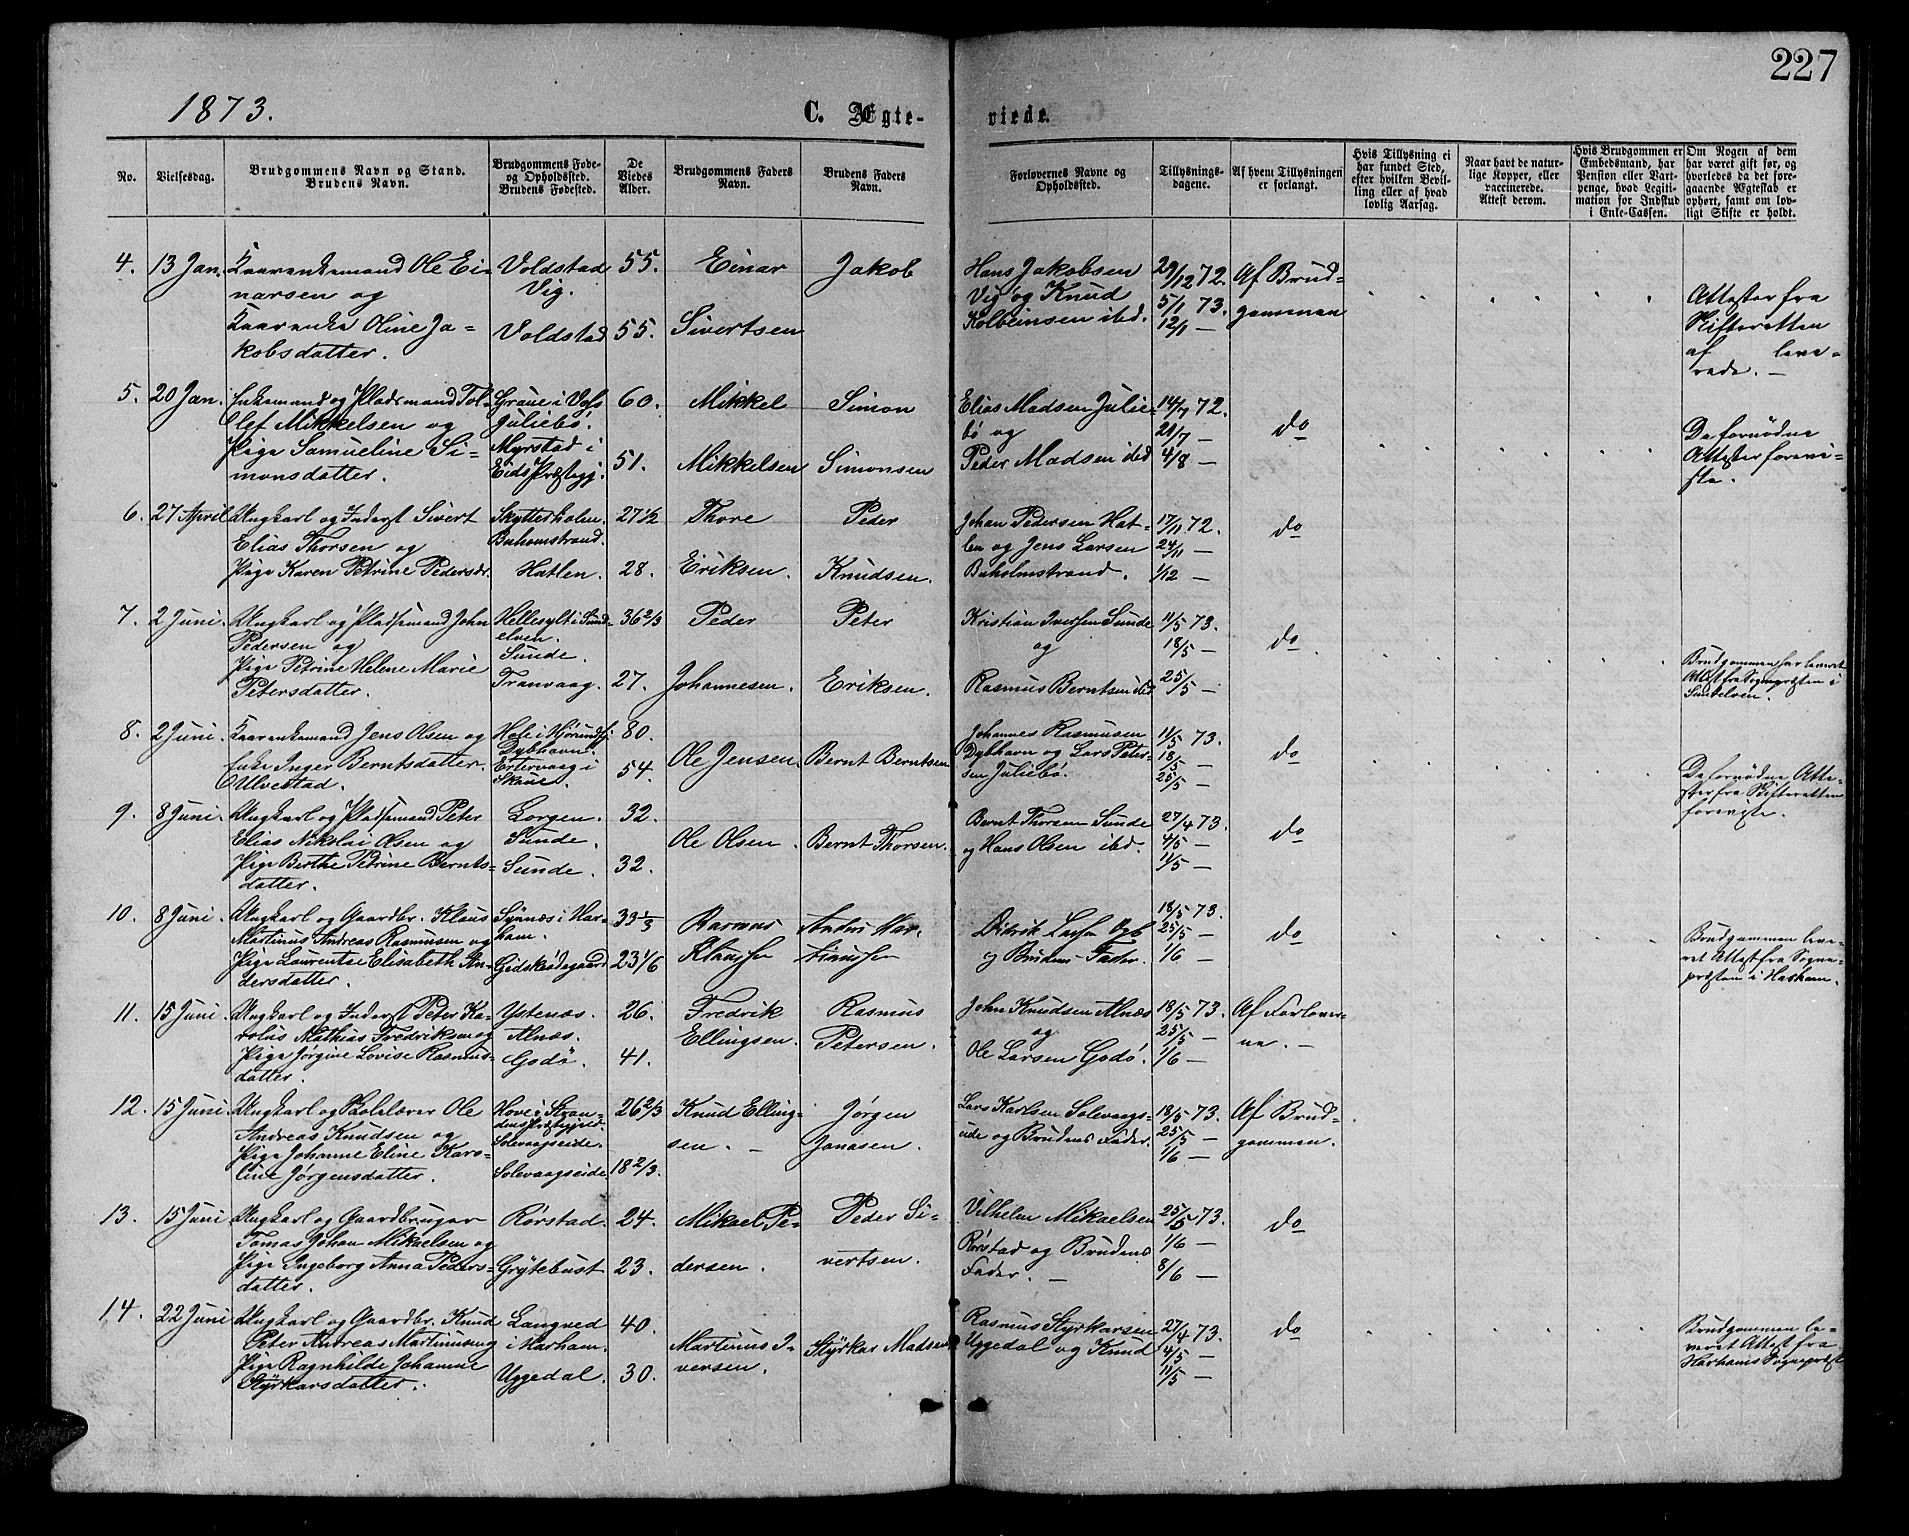 227
1873.
C. Ægte-
viede.
No.
Vielsesdag.
Brudgommens Navn og Stand.
Brudens Navn.
Brudgommens Føde-
og Opholdssted.
Brudens Fødested.
De
Viedes
Alder.
Brudgommens Faders
Navn.
Brudens Faders
Navn.
Forlovernes Navne og
Opholdssted.
Tillysnings-
dagene.
Af hvem Tillysningen
er forlangt.
Hvis Tillysning ei
har fundet Sted,
efter hvilken Bevil-
ling eller af hvad
lovlig Aarsag.
Naar havt de natur-
lige Kopper, eller
vaccinerede.
Attest derom.
Hvis Brudgommen er
Embedsmand, har
Pension eller Vart-
penge, hvad Legiti-
mation for Indskud
i Enke-Cassen.
Om Nogen af dem
har været gift før, og
hvorledes da det fore-
gaaende Ægteskab er
ophørt, samt om lov-
ligt Skifte er holdt.
4. 13 Jan. Kaarenkemand Ole Ei-
narsen og
Kaarenke Oline Ja-
kobsdatter.
Voldstad
Vig.
Voldstad
55.
55.
Einar
Sivertsen
Jakob
Hans Jakobsen
Vig og Knud
Kolbeinsen ibid.
29/12 72.
5/1 73.
12/1 —
Af Brud-
gommen
Attester fra
Skifteretten
af leve-
rede. —
5. 20 Jan. Enkemand og Pladsmand Tol-
lef Mikkelsen og
Pige Samueline Si-
monsdatter.
Graue i Vos
Juliebø.
Myrstad i
Eids Præstegj.
60.
51.
Mikkel
Mikkelsen
Simon
Simonsen
Elias Madsen Julie-
bø og
Peder Madsen ibid
14/7 72.
21/7 —
4/8 —
do
De fornødne
Attester forevi-
ste.
6. 27 April Ungkarl og Inderst Sivert
Elias Thorsen og
Pige Karen Petrine Pedersdr.
Skytterholm.
Buholmstrand.
Hatlen.
27 1/2
28.
Thore
Eriksen.
Peder
Knudsen.
Johan Pedersen Hat-
len og Jens Larsen
Buholmstrand.
17/11 72.
24/11 —
1/12 —
do
7. 2 Juni. Ungkarl og Pladsemand John
Pedersen og
Pige Petrine Helene Marie
Petersdatter.
Hellesylt i Sund-
elven.
Sunde.
Tranvaag.
36 2/3
27.
Peder
Johannesen.
Peter
Eriksen.
Kristian Iversen Sunde
og
Rasmus Berntsen ibd
11/5 73.
18/5 —
25/5 —
do
Brudgommen har leveret
Attest fra Sognepræsten i
Sundelven.
8. 2 Juni. Kaarenkemand Jens Olsen og
Enke Inger Berntsdatter
Ulvestad.
Hole i Hjørundfj.
Dybhavn.
Ertervaag i
Skaue.
80.
54.
Ole Jensen.
Bernt Berntsen
Johannes Rasmusen
Dybhavn og Lars Peter-
sen Juliebø.
11/5 73.
18/5 —
25/5 —
do
De fornødne Atte-
ster fra Skifteretten
foreviste.
9. 8 Juni. Ungkarl og Pladsemand Peter
Elias Nikolai Olsen og
Pige Berthe Petrine Bernts-
datter.
Lorgen.
Sunde.
Sunde.
32.
32.
Ole Olsen.
Bernt Thorsen.
Bernt Thorsen Sunde
og Hans Olsen ibd.
27/4 73.
4/5 —
11/5 —
do
10. 8 Juni. Ungkarl og Gaardbr. Klaus
Martinus Andreas Rasmusen og
Pige Laurentse Elisabeth An-
dersdatter.
Synnæs i Har-
ham.
Gidskeødegaard
33 1/3
23 1/6
Rasmus
Klaussen
Anders Mar-
tinussen
Didrik
og Brudens Fader.
18/5 73.
25/5 —
1/6 —
do
Brudgommen leve-
ret Attest fra Sogne-
præsten i Harham.
11. 15 Juni. Ungkarl og Inderst Peter Ka-
rolus Mathias Fredriksen og
Pige Jørgine Lovise Rasmus-
datter.
Ystenæs.
Alnæs.
Godø.
26.
41.
Fredrik
Ellingsen.
Rasmus
Petersen.
John Knudsen Alnæs
og
Ole Larsen Godø.
18/5 73.
25/5 —
1/6 —
Af Forlover-
ne. —
12. 15 Juni. Ungkarl og Skolelærer Ole
Andreas Knudsen og
Pige Johanne Eline Karo-
line Jørgensdatter.
Hove i Stran-
dens Præstegjeld.
Solevaagseide.
Solevaagseide.
26 2/3
18 2/3.
Knud Elling-
sen. —
Jørgen
Jonasen.
Lars Karlsen Solevaags-
eide og Brudens Fader.
18/5 73.
25/5 —
1/6 —
Af Brud-
gommen.
13. 15 Juni Ungkarl og Gaardbruger
Tomas Johan Mikaelsen og
Pige Ingeborg Anna Peders-
datter.
Rørstad.
Grytebust
24.
23.
Mikael Pe-
dersen.
Peder Si-
vertsen.
Vilhelm Mikaelsen
Rørstad og Brudens
Fader. —
25/5 73.
1/6 —
8/6 —
do
14. 22 Juni Ungkarl og Gaardbr. Knud
Peter Andreas Martinusen og
Pige Ragnhilde Johanne
Styrkarsdatter.
Langved
i Harham.
Uggedal.
40.
30.
Martinus I-
versen.
Styrkar Madsen
Rasmus Styrkarsen
Uggedal og Knud
27/4 73.
4/5 —
11/5 —
do
Brudgommen le-
veret Attest fra
Harhams Sognepræst